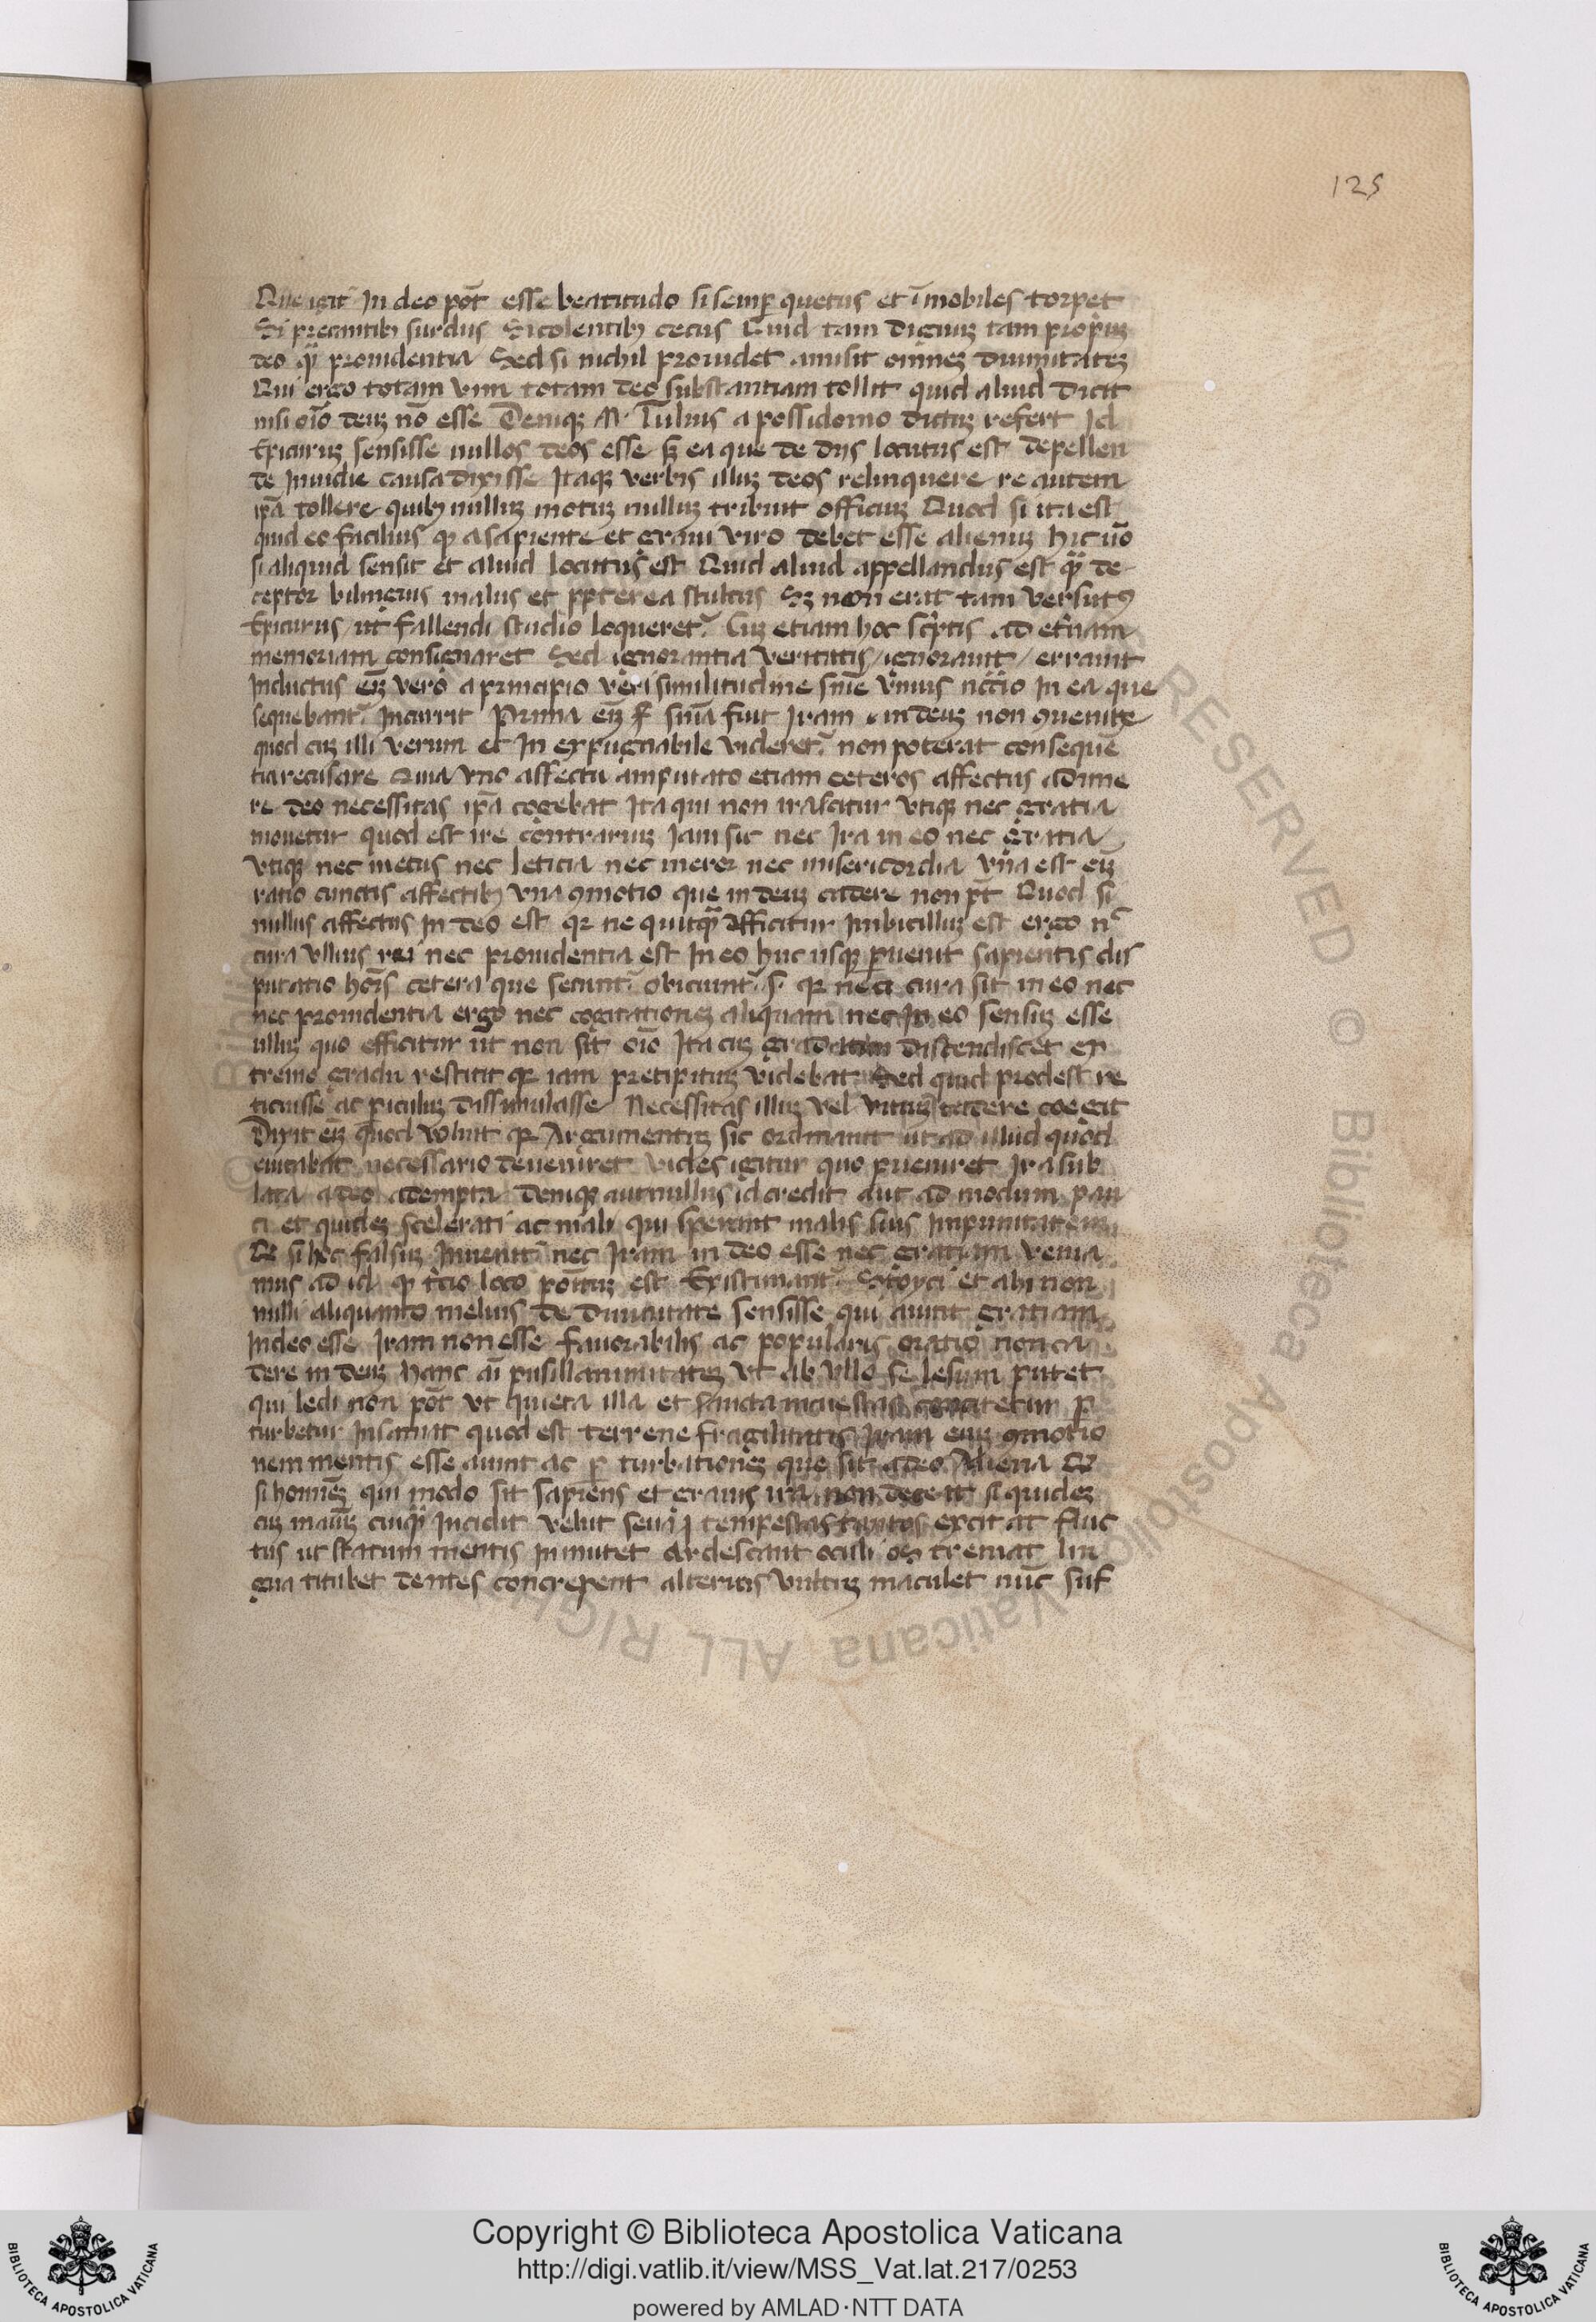 125
Que igit̄ In deo pōt esse beatitudo si semp̲ quetus et īmobiles torpet
Si precantibꝫ surdus Si colentibꝫ cecus Quid tam dignuꝫ tam propriuꝫ
deo qͣꝫ prouidentia Sed si nichil prouidet amisit omneꝫ diuinitateꝫ
Qui ergo totam vim totam deo substantiam tollit quid aliud dicit
nisi oīo deuꝫ nō esse Deniqꝫ M. Tulius a possidonio dictuꝫ refert Id
Epicuruꝫ sensisse nullos deos esse sꝫ ea que de dijs locutus est depellen
de Inuidie causa dixisse Itaqꝫ verbis illuꝫ deos relinquere re autem
ip̄a tollere quibꝫ nulluꝫ motuꝫ nulluꝫ tribuit officiuꝫ Quod si ita est
quid eo facilius qꝫ a sapiente et graui viro debet esse alienuꝫ hic ūo
si aliquid sensit et aliud locutus est Quid aliud appellandus est qͣꝫ de
ceptor bilinguis malus et ꝓpterea stultus Sꝫ non erat tam versutꝰ
Epicurus / ut fallendi studio loqueret᷑ Cuꝫ etiam hoc sc̓ptis ad et̓nam
memoriam consignaret Sed ignorantia veritatis / ignorauit / errauit
Inductus eīꝫ vero a principio veri similitudine sn̄ie vnius nc̄c̄io In ea que
sequebant᷑ Incurrit Prima eīꝫ sn̄ia fuit Iram in deuꝫ non ꝯuenire
quod cuꝫ illi verum et In expugnabile videret᷑ non poterat consequē
tia recusare Quia vno affectu amputato etiam ceteros affectus adime
re deo necessitas ip̄a cogebat Ita qui non irascitur vtiqꝫ nec gratia
mouetur quod est ire contrariuꝫ Iam sic nec Ira in eo nec gratia
vtiqꝫ nec metus nec leticia nec meror nec misericordia vna est eīꝫ
ratio cunctis affectibꝫ vna ꝯmotio que in deuꝫ cadere non pt̄ Quod si
nullus affectus In deo est qꝛ ne quitqͣꝫ afficitur Imbicilluꝫ est ergo nͨ
cura vllius rei nec prouidentia est In eo huc usqꝫ p̲uenit sapientis dis
putatio hoīs cetera que secunt᷑ obiciunt᷑ .s. qꝛ nec cura sit in eo nec
nec prouidentia ergo nec cogitationeꝫ aliquam nec In eo sensuꝫ esse
ulluꝫ quo efficitur ut non sit oīo Ita cuꝫ gradatim discendiscet ex
tremo gradu restitit qꝛ iam precipituꝫ videbat Sed quid prodest re
ticuisse ac p̲iculuꝫ dissimulasse Necessitas illuꝫ vel cadere coegit
Dixit eīꝫ quod voluit qꝛ Argumentuꝫ sic ordinauit ut ad illud quod
euitabat necessario deueniret vides igitur quo p̲ueniret Ira sub
lata a deo adempta deniqꝫ aut nullus id credit aut ad modum pau
ci et quideꝫ scelerati ac mali qui sperant malis suis Impunitatem
si hoc falsuꝫ Inuenit᷑ nec Iram in deo esse nec gratiam venia
mus ad id qꝫ t̓cio loco est Existimant᷑ Stoyci et alij non
nulli aliquanto melius de diuinitate sensisse qui aiunt gratiam
In deo esse Iram non esse fauorabilis ac popularis oratio non ca
dere in deuꝫ hanc aī pusillanimitateꝫ vt ab vllo se lesum putet
qui ledi non pōt vt quieta illa et sancta maiestas concitetur p̲
turbetur Insaniat quod est terrene fragilitatis Iram eīꝫ ꝯmotio
nem mentis esse aiunt ac p̲ turbationeꝫ que sit a deo Aliena
si homineꝫ qui modo sit sapiens et grauis ira non deceat si quideꝫ
cuꝫ cuiusqͣꝫ Incidit velut seua tempestas tantos excitat fluc
tus ut statum mentis Inmutet Ardescant oculi os tremat lin
gua titubet dentes concrepent alternis vultuꝫ maculet nūc suf